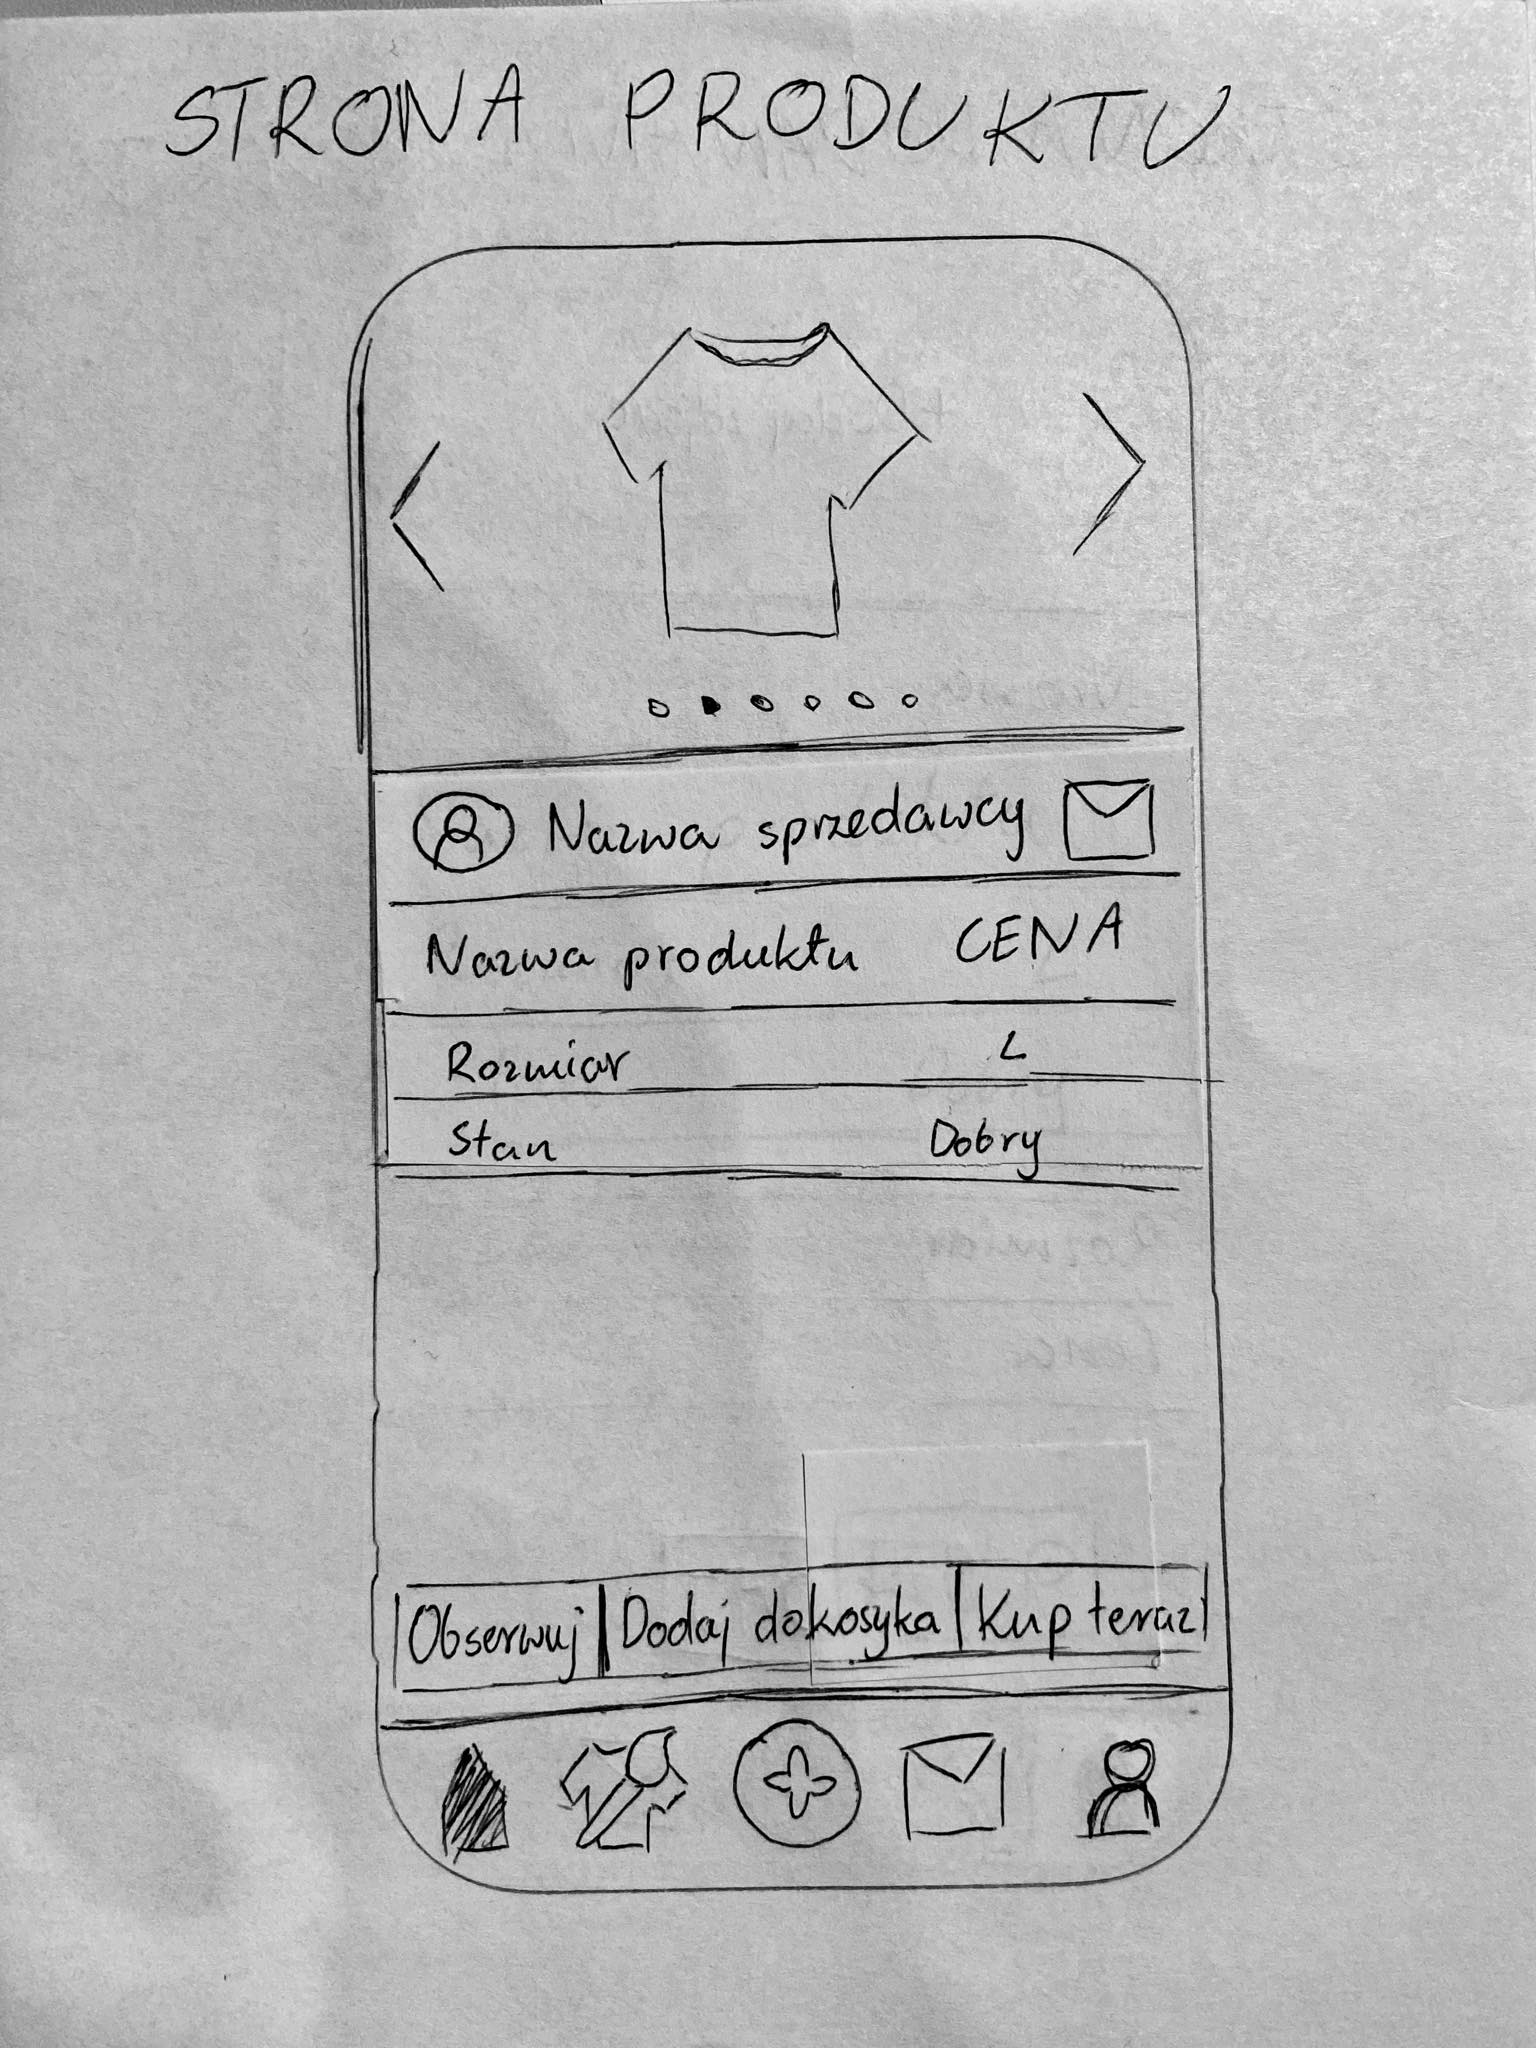 STRONA PRODUKTU
Nazwa sprzedawcy
Nazwa produktu CENA
Rozmiar L
Stan Dobry
Obserwuj Dodaj do kosyka Kup teraz